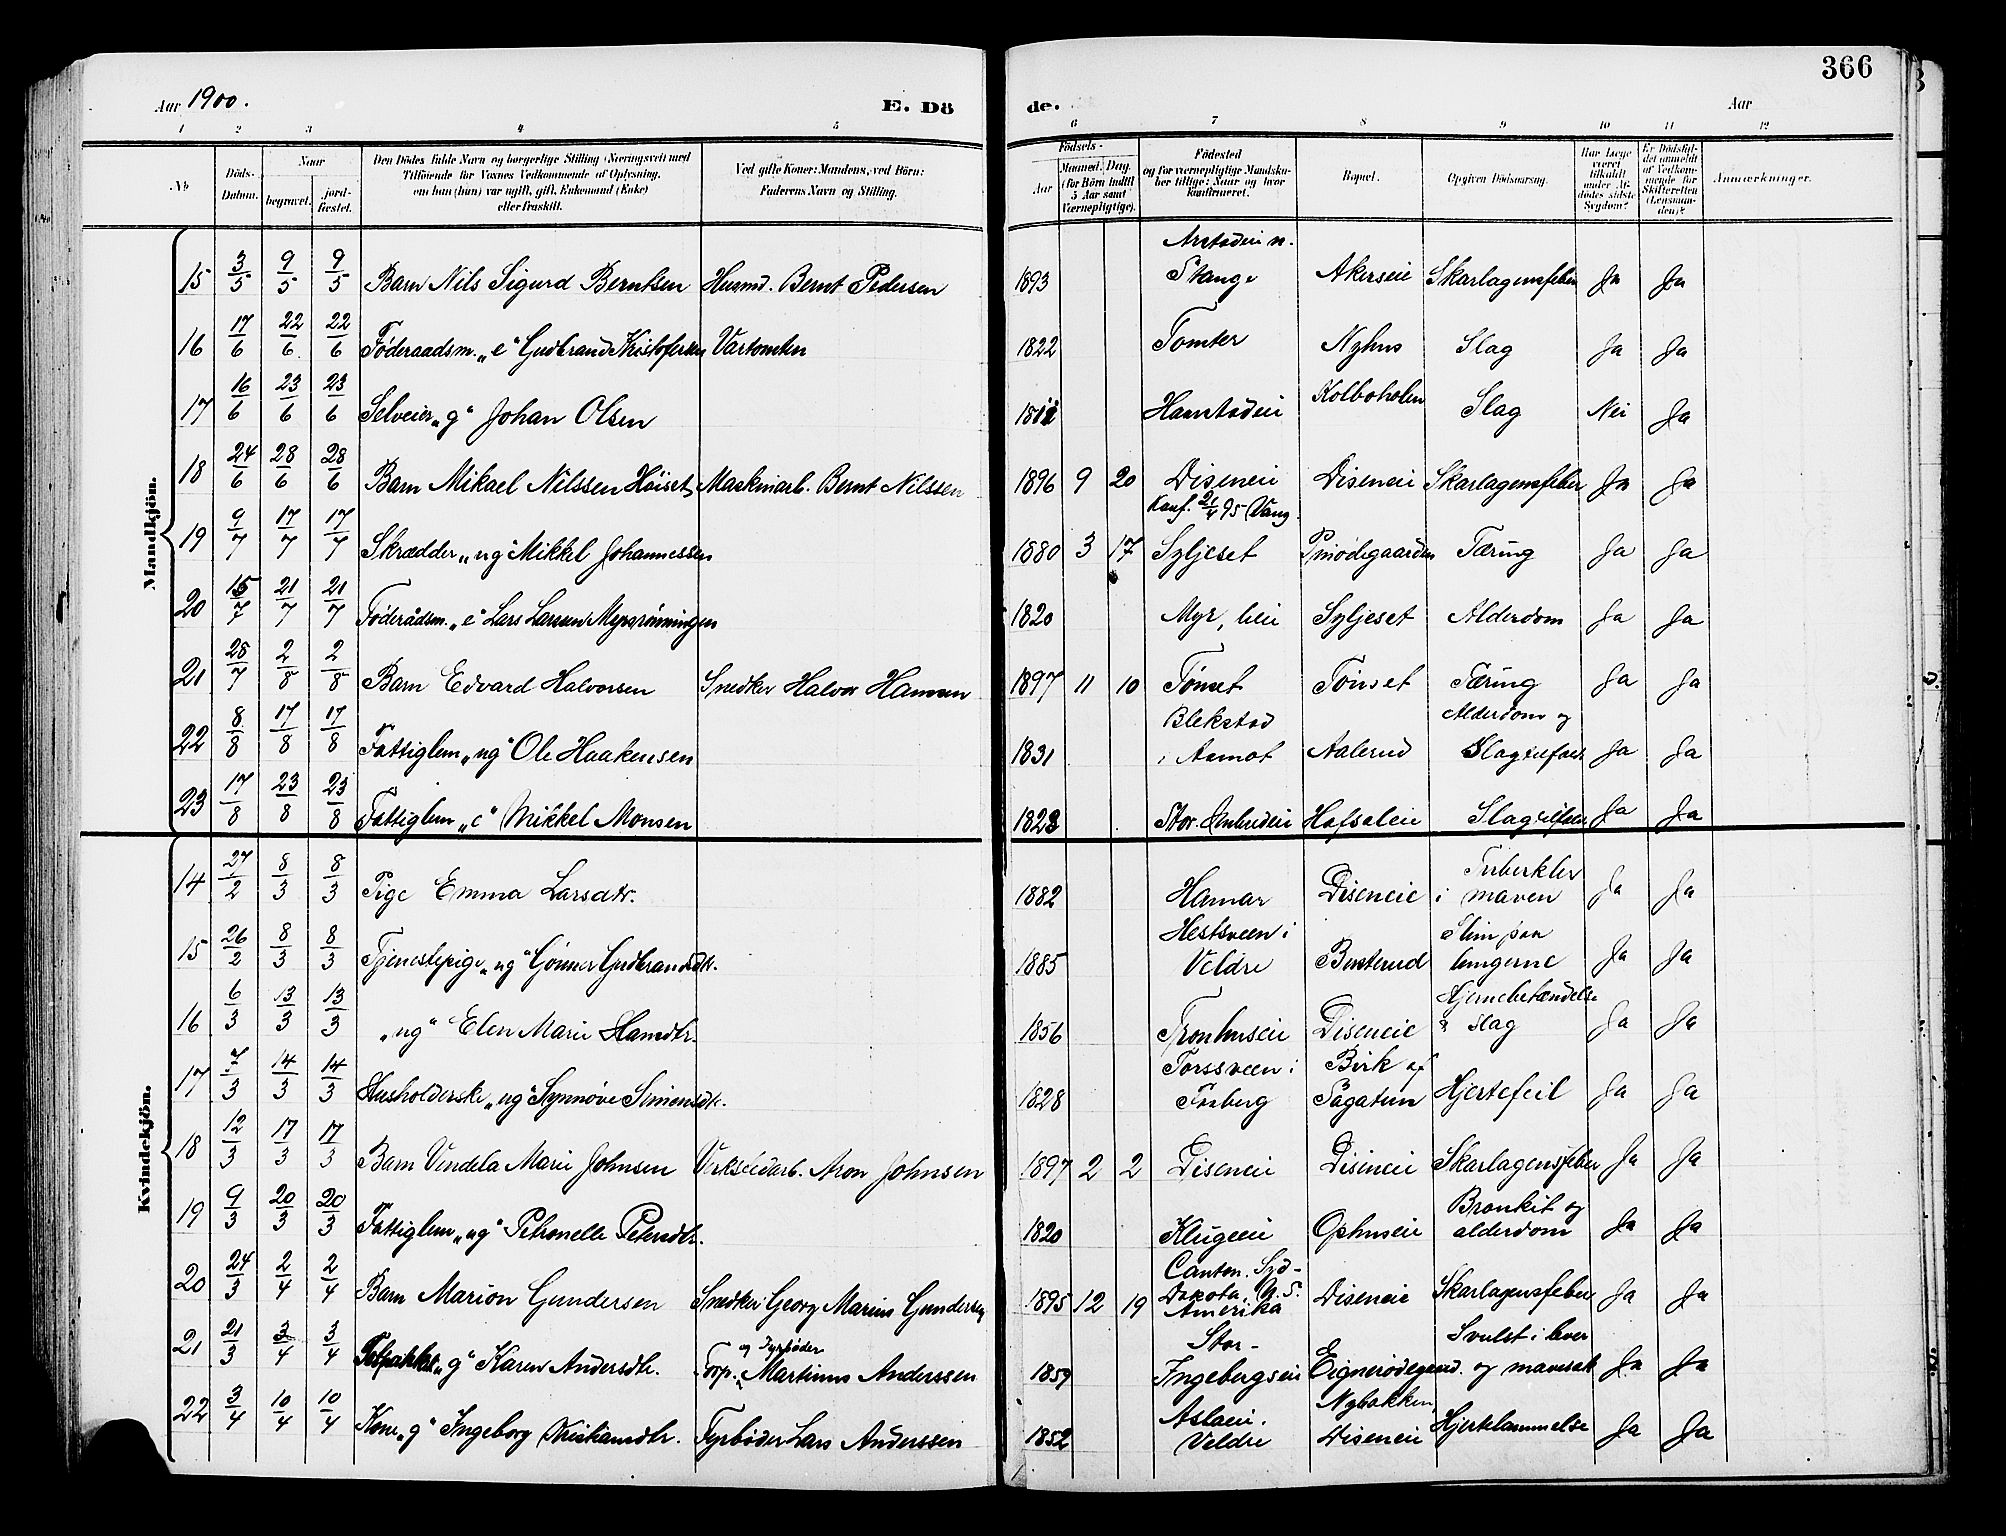 Aar 1900.
E. Dö
de.
Aar
366
1 2 3 4 5 6 7 8 9 10 11 12
No
Döds-Datum.
Naar
begravet.
jord-fæstet.
Den Dödes fulde Navn og borgerlige Stilling (Næringsvei) med
Tilföiende for Voxnes Vedkommende af Oplysning,
om han (hun) var ugift, gift, Enkemand (Enke)
eller fraskilt.
Ved gifte Koner: Mandens, ved Börn:
Faderens Navn og Stilling.
Födsels-
Aar
Maaned. Dag.
(for Börn indtil
5 Aar samt
Værnepligtige).
Födested
og for værnepligtige Mandska-
ber tillige: Naar og hvor
konfirmeret.
Bopæl.
Opgiven Dödsaarsag.
Har Læge
været
tilkaldt
under Af-
dödes sidste
Sygdom?
Er Dödsfal-
det anmeldt
af Vedkom-
mende for
Skifteretten
(Lensman-
den)?
Anmærkninger.
Mandkjön.
15 3/5 9/5 9/5 Barn Nils Sigurd Berntsen Husmd. Bernt Pedersen 1893 Stange Akerseie Skarlagensfeber Ja Ja
16 17/6 22/6 22/6 Föderaadsm. „e" Gudbrand Kristofersen Vartomten 1822 Tomter Nyhus Slag Ja Ja
17 16/6 23/6 23/6 Selveier „g" Johan Olsen Kolboholen Slag Nei Ja
18 24/6 28/6 28/6 Barn Mikael Nilssen Höiset Maskinarb. Bernt Nilssen 1896 9 20 Diseneie Diseneie Skarlagensfeber Ja Ja
Konf. 21/4 95 Vang.
19 9/7 17/7 17/7 Skrædder „ug" Mikkel Johannessen 1880 3 17 Syljeset Tæring Ja Ja
20 15/7 21/7 21/7 Föderådsm. „e" Lars Larsen Myrrönningen 1820 Syljeset Alderdom Ja Ja
21 28/7 2/8 2/8 Barn Edvard Halvorsen Snedker Halvor Hansen 1897 11 10 Tönset Tönset Tæring Ja Ja
22 8/8 17/8 17/8 Fattiglem „ug" Ole Haakensen 1831 Blekstad i Aamot Aalerud Alderdom og Slagtilfæld Ja Ja
23 17/8 23/8 23/8 Fattiglem „e" Mikkel Monsen Hafsaleie Slagtilfæld Ja Ja
Kvindekjön.
14 27/2 8/3 8/3 Pige Emma Larsdtr. 1882 Hamar Diseneie Tuberkler i maven Ja Ja
15 26/2 8/3 8/3 Tjenestepige „ug" Gönner Gudbrandsdtr. 1885 Hestsveen i Veldre Busterud Slim paa lungerne Ja Ja
16 6/3 13/3 13/3 „ug" Elen Marie Hansdtr. 1856 Tronhuseie Diseneie Hjernebetændelse & slag Ja Ja
17 7/3 14/3 14/3 Husholderske „ug" Synnöve Simensdtr. 1828 Torssveen i Fåberg Birk af Pagatun Hjertefeil Ja Ja
18 12/3 17/3 17/3 Barn Vendela Marie Johnsen Verkstedarb. Aron Johnsen 1897 2 2 Diseneie Diseneie Skarlagensfeber Ja Ja
19 9/3 20/3 20/3 Fattiglem „ug" Petronelle Petersdtr. 1820 Klugeeie Ophuseie Bronkit og alderdom Ja Ja
20 24/3 2/4 2/4 Barn Marion Gundersen Snedker Georg Marius Gundersen 1895 12 19 Canton. Syd-Dakota, N. S. Amerika Diseneie Skarlagensfeber Ja Ja
21 21/3 3/4 3/4 „g" Karen Andersdtr. Torp. og Fyrböder Martinus Anderssen 1859 Stor-Ingebergseie Eignerödegaard. Svulst i lever og mavesæk Ja Ja
22 3/4 10/4 10/4 Kone „g" Ingeborg Kristiansdtr. Fyrböder Lars Anderssen 1852 Aslaeie. Veldre Nybakken, Diseneie Hjertelammelse Ja Ja